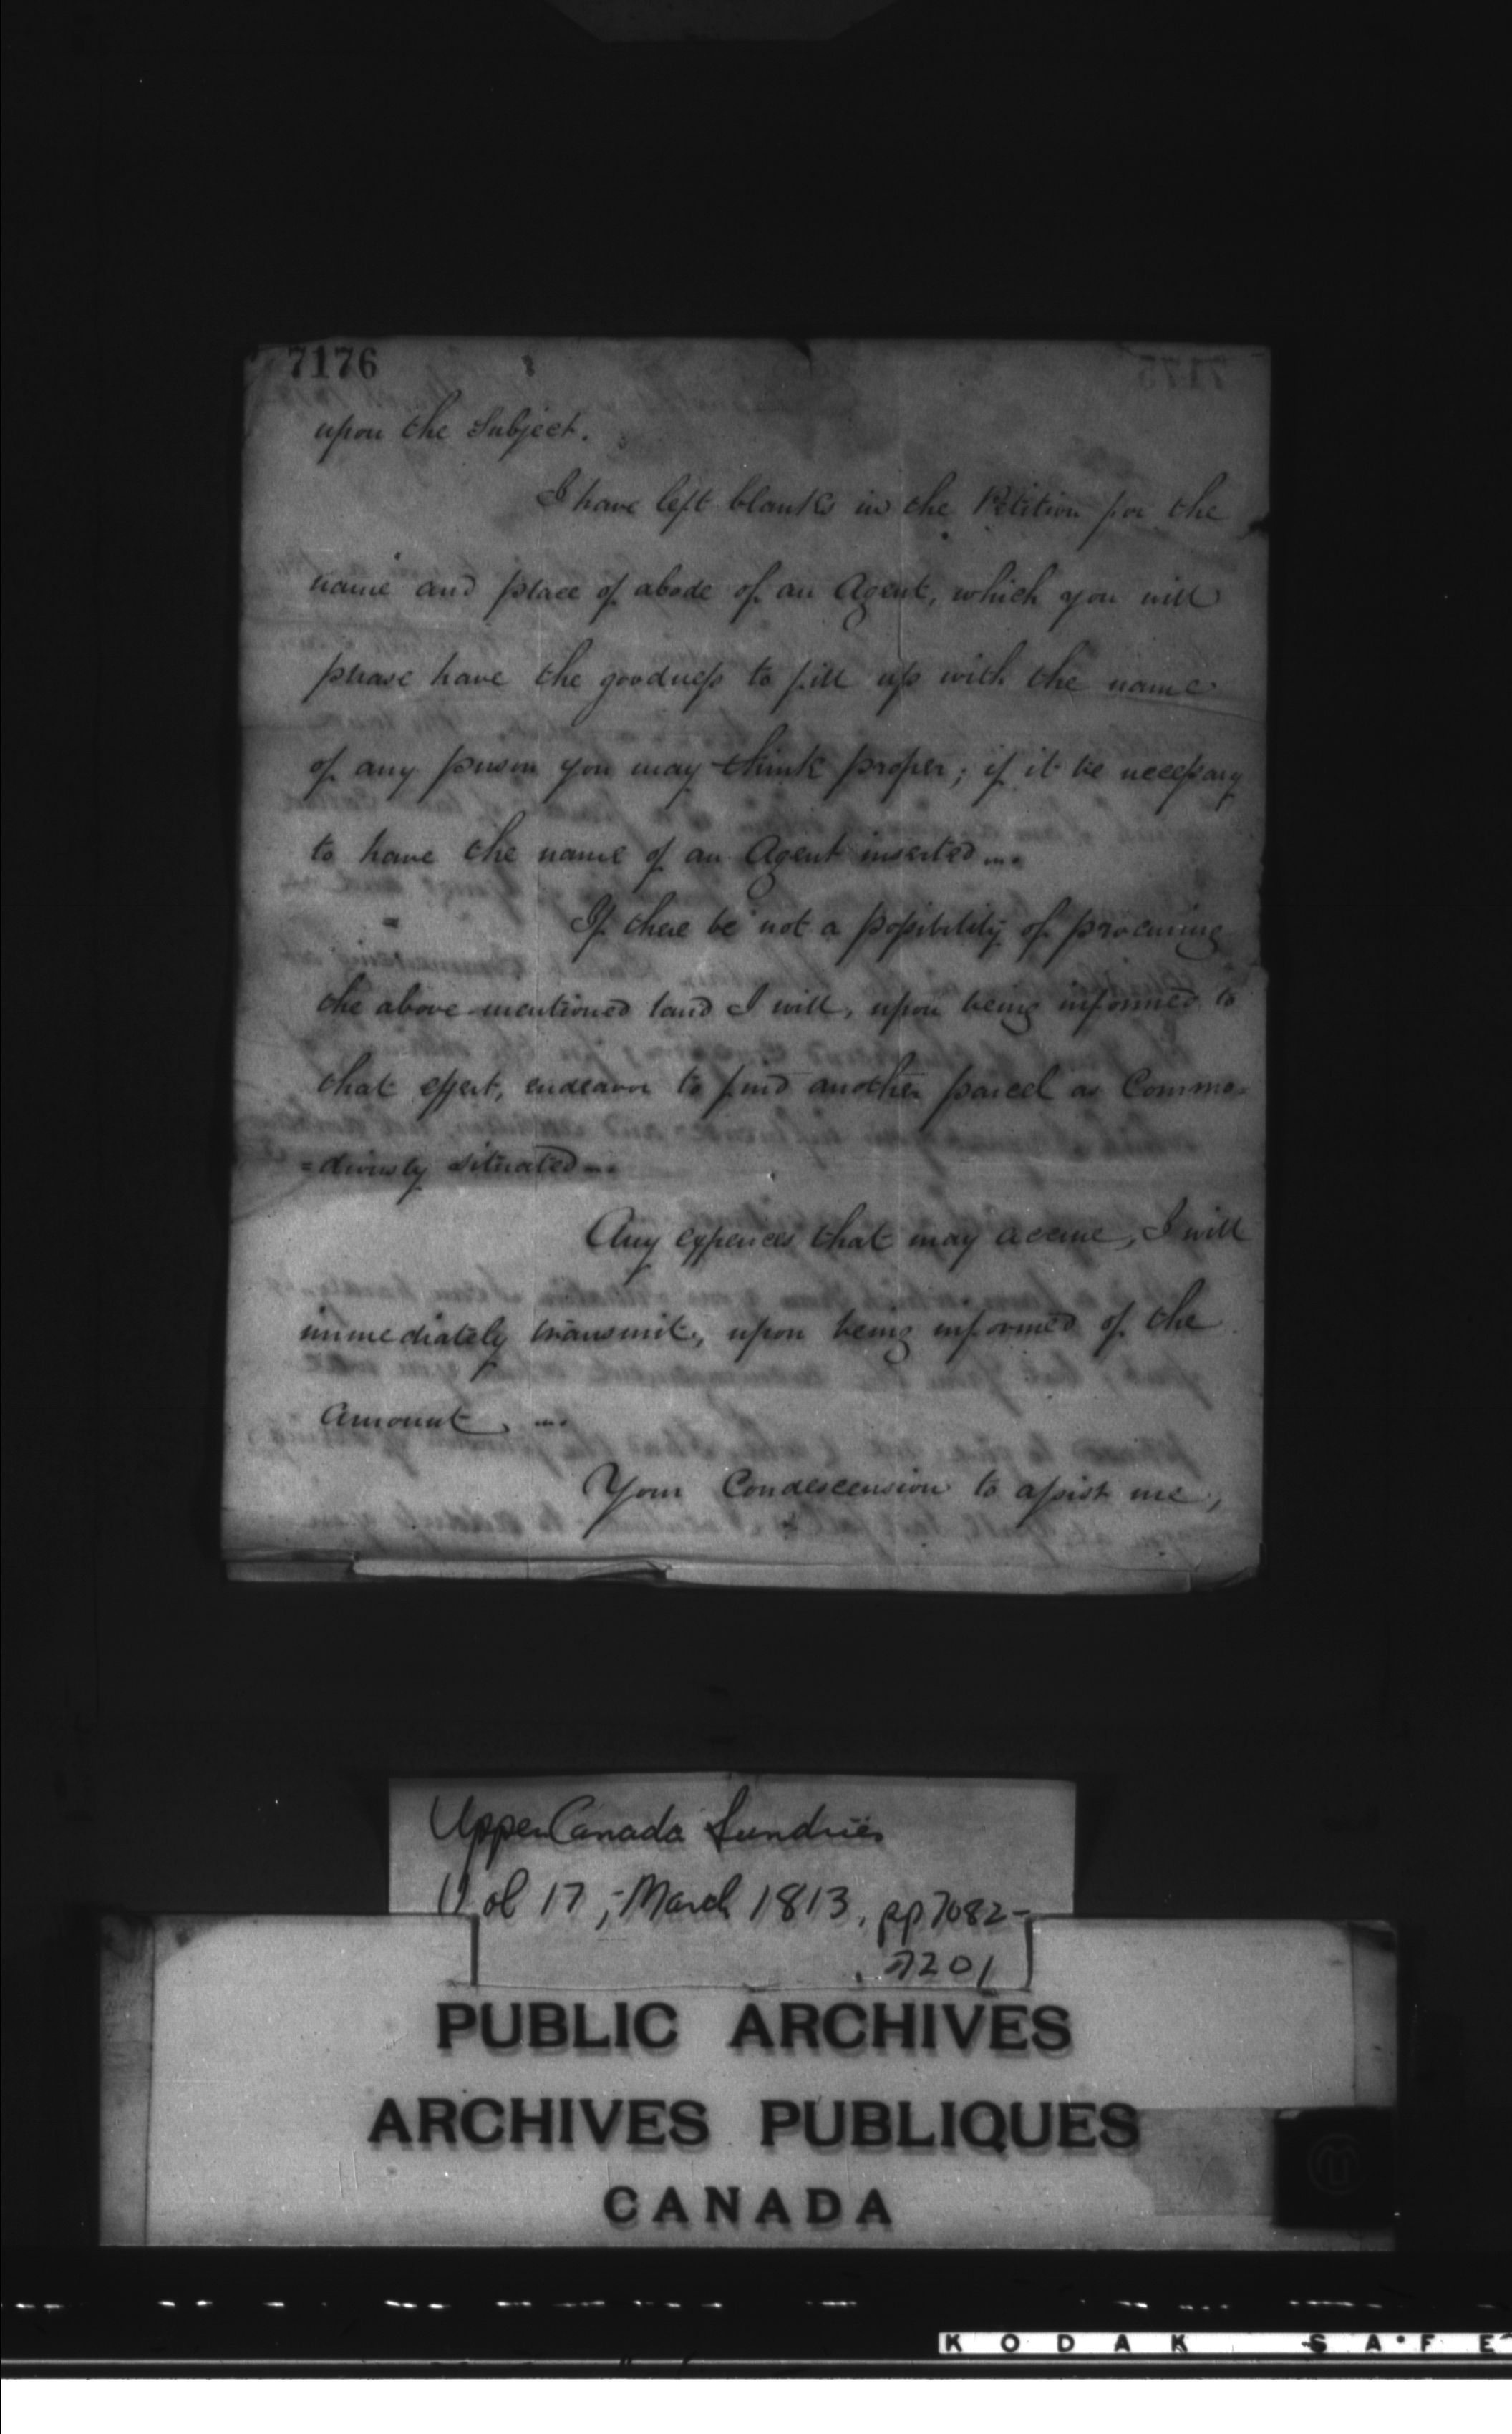 7176
upon the Subject.
I have left blanks in the Petition for the
name and place of abode of an Agent, which you will
please have the goodness to fill up with the name
of any person you may think proper; if it be necessary
to have the name of an Agent inserted...
If there be not a possibility of procuring
the above mentioned land I will, upon being informed to
that effect, endeavor to find another parcel as Commo-
=diously situated...
Any expences that may accrue, I will
immediately transmit, upon being informed of the
Amount, ...
Your Condescension to assist me,
Upper Canada Sundries
Vol 17, March 1813, pp 7082-
7201
PUBLIC ARCHIVES
ARCHIVES PUBLIQUES
CANADA
KODAK SAFE